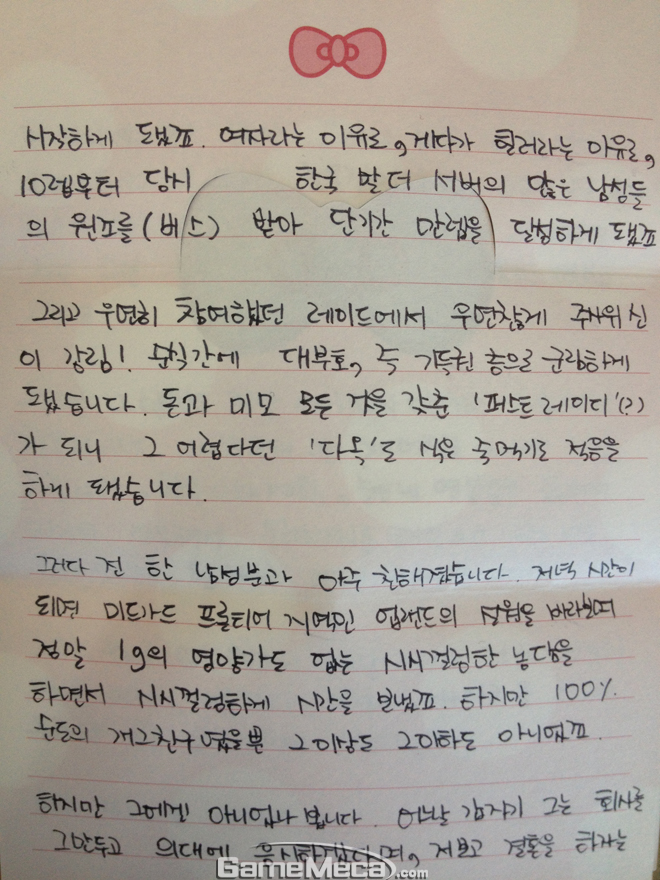 시작하게 됐죠. 여자라는 이유로, 게다가 힐러라는 이유로,
10렙부터 당시 한국 말더 서버의 많은 남성들
의 원조를(버스) 받아 단기간 만렙을 달성하게 됐죠
그리고 우연히 참여했던 레이드에서 우연찮게 주사위 신
이 강림! 순식간에 대부호, 즉 기득권 층으로 군림하게
됐습니다. 돈과 미모 모든 것을 갖춘 '퍼스트레이디'(?)
가 되니 그 어렵다던 '다옥'도 식은 죽먹기로 적응을
하게 됐습니다.
그러다 전 한 남성분과 아주 친해졌습니다. 저녁 시간이
되면 미드가드 프론티어 지역인 업랜드의 설원을 바라보며
정말 1g의 영양가도 없는 시시껄렁한 농담을
하면서 시시껄렁하게 시간을 보냈죠. 하지만 100%
순도의 개그친구였을 뿐 그 이상도 그 이하도 아니었죠.
하지만 그에겐 아니었나 봅니다. 어느날 갑자기 그는 회사를
그만두고 의대에 응시하겠다며, 저보고 결혼을 하자는
GameMeca.com